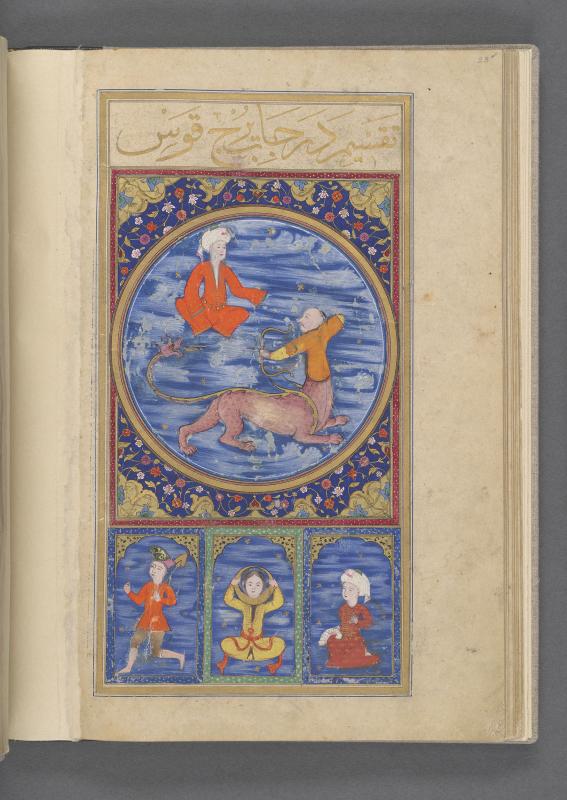 تقسیم درجات برج قوس